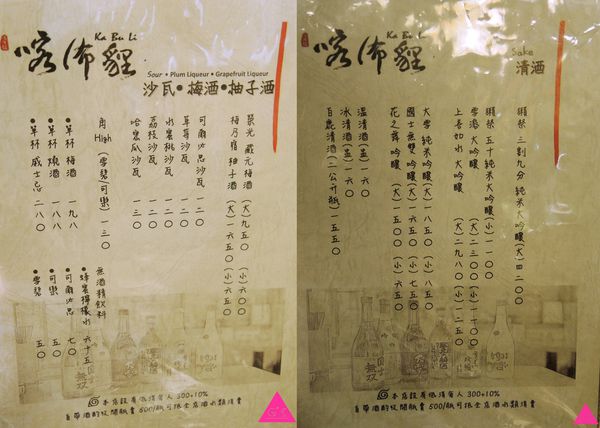 Ka Bu Li
喀佈貍
Sour • Plum Liqueur • Grapefruit Liqueur
沙瓦•梅酒•柚子酒
榮光 藏元梅酒 (大)九五〇 (小)六五〇
梅乃宿 柚子酒 (大)一六五〇 (小)六五〇
可爾必思沙瓦 一二〇
草莓沙瓦 一二〇
水蜜桃沙瓦 一二〇
荔枝沙瓦 一二〇
哈蜜瓜沙瓦 一三〇
角 High (雪碧/可樂) 一三〇
●單杯 梅酒 一九八
●單杯 燒酒 一八八
●單杯 威士忌 二八〇
無酒精飲料
●蜂蜜檸檬水 六十五
●可爾必思 七〇
●可樂 五〇
●雪碧 五〇
本店設有低消每人 300+10%
自帶酒酌收開瓶費 500/瓶可抵全店酒水類消費
Ka Bu Li
喀佈貍
Sake
清酒
獺祭 三割九分 純米大吟釀(大)四二〇〇
獺祭 五十純米大吟釀(小)一一〇〇
雪酒 大吟釀 (大)二三〇〇(小)一十〇〇
上善如水 大吟釀 (大)二九八〇(小)一二五〇
大雪 純米吟釀(大)一八五〇(小)八五〇
國士無雙 吟釀(大)一六五〇(小)七五〇
花之舞 吟釀(大)一五〇〇(小)六五〇
溫清酒(壺)一六〇
冰清酒(壺)一六〇
白鹿清酒(二公升瓶)一五五〇
本店設有低消每人 300+10%
自帶酒酌收開瓶費 500/瓶可抵全店酒水類消費